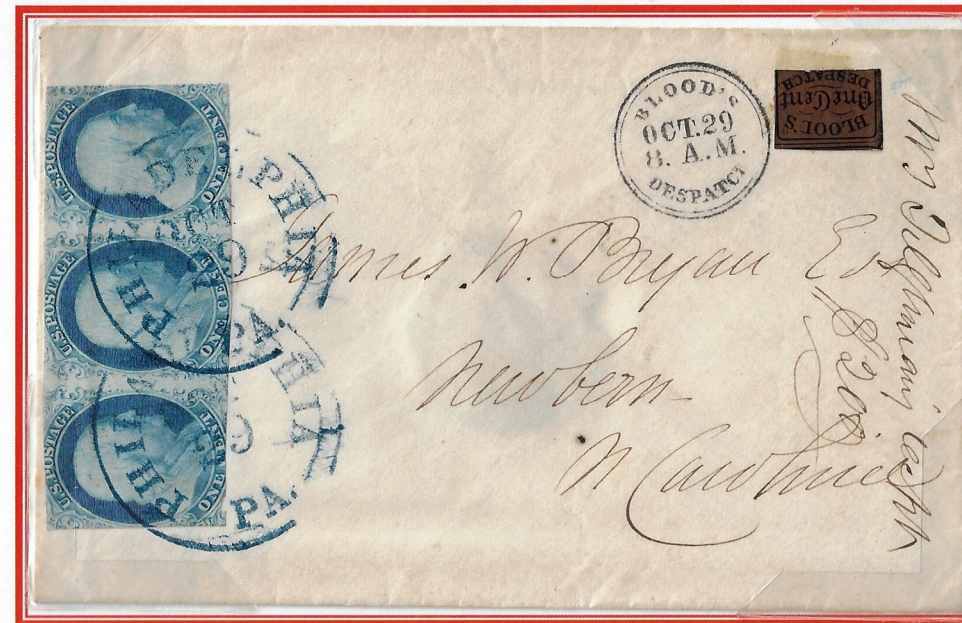 U.S. POSTAGE
ONE CENT
U.S. POSTAGE
ONE CENT
U.S. POSTAGE
ONE CENT
PHILADELPHIA
OCT
PA.
PHILADELPHIA
PA.
BLOOD'S
OCT. 29
8. A.M.
DESPATCH
BLOOD'S
One Cent
DESPATCH
James. W. Bryan Esq
Newbern
N Carolina
Mrs Tilghman's
$200